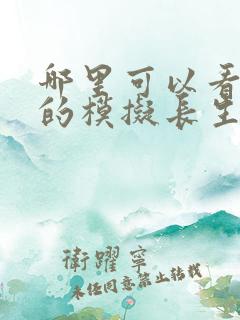 哪里可以看
的模擬長生
衛躍寧
未经同意禁止转载